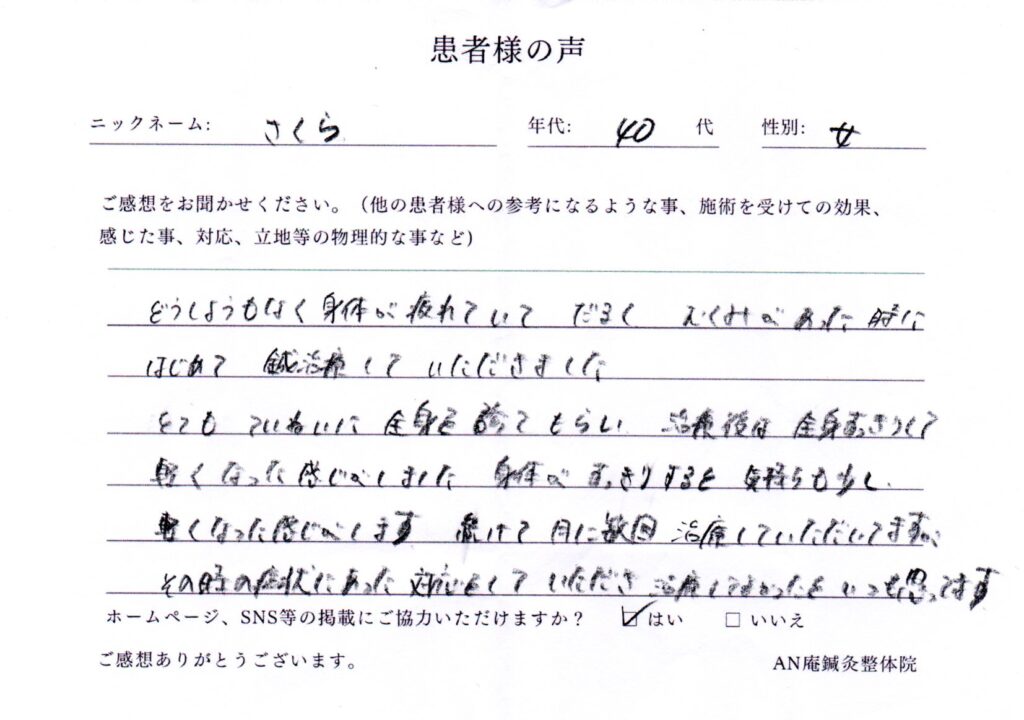 患者様の声
ニックネーム: さくら 年代: 40 代 性別: 女
ご感想をお聞かせください。（他の患者様への参考になるような事、施術を受けての効果、
感じた事、対応、立地等の物理的な事など)
どうしようもなく 身体が 疲れていて だるく むくみが あった 時に
はじめて 鍼治療して いただきました
とても ていねいに 全身を 診て もらい 治療後は 全身すっきりして
軽くなった 感じがしました 身体が すっきりすると 気持ちも少し
軽くなった感じがします 続けて 月に数回 治療していただいてますが
その時の症状にあった 対応をして いただき 治療してよかったと いつも思ってます
ホームページ、SNS等の掲載にご協力いただけますか？ ☑ はい □ いいえ
ご感想ありがとうございます。 AN庵鍼灸整体院